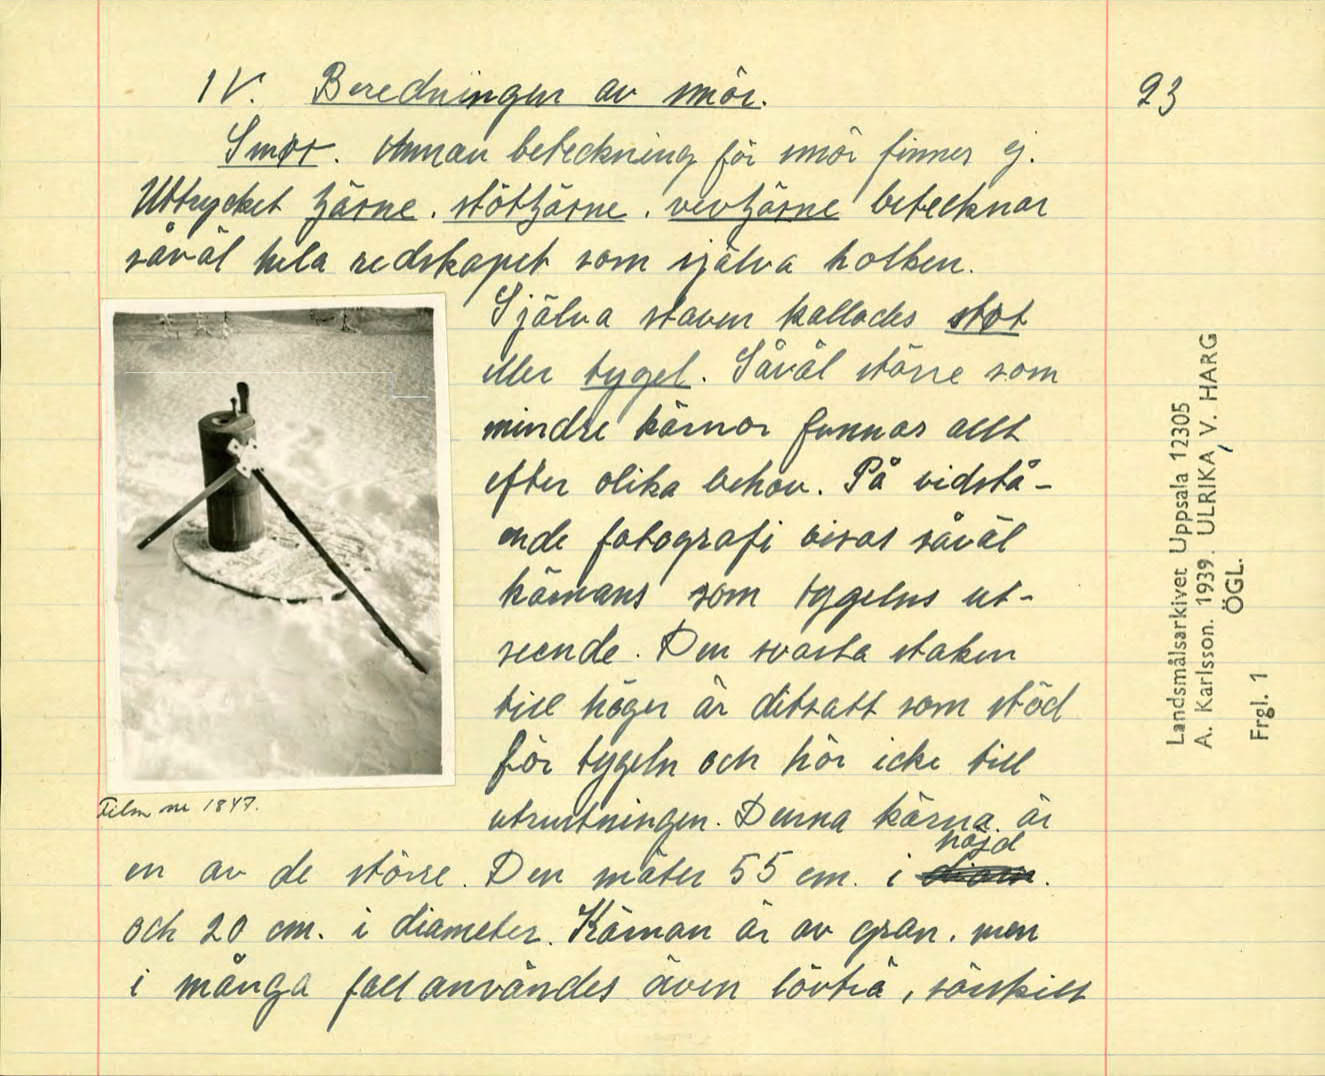 IV. Beredningen av smör.
23
Smør. Annan beteckning för smör finnes ej.
Uttrycket tjärne, stöttjärne, vevtjärne betecknar
såväl hela redskapet som själva holken.
Själva staven kallades støt
eller tygel. Såväl större som
mindre kärnor funnos allt
efter olika behov. På vidstå-
ende fotografi visas såväl
kärnans som tygelns ut-
seende. Den svarta staken
till höger är ditsatt som stöd
för tygeln och hör icke till
utrustningen. Denna kärna är
en av de större. Den mäter 55 cm. i höjd
och 20 cm. i diameter. Kärnan är av gran, men
i många fall användes även lövträ, särskilt
Film nr 1847.
Landsmålsarkivet Uppsala 12305
A. Karlsson. 1939. ULRIKA, V. HARG
ÖGL.
Frgl. 1